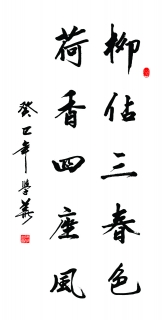 柳佔三春色
荷香四座風
癸巳年學義